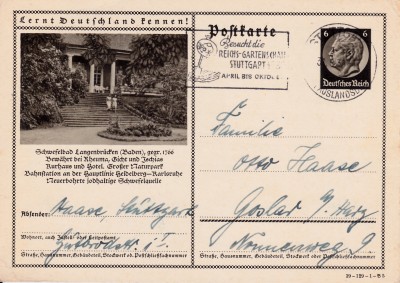 Lernt Deutschland kennen!
Postkarte
Besucht die
REICHS-GARTENSCHAU
STUTTGART
APRIL BIS OKTOB.
6 6
Deutsches Reich
AUSLANDS
Schwefelbad Langenbrücken (Baden), gegr. 1766
Bewährt bei Rheuma, Gicht und Ischias
Kurhaus und Hotel. Großer Naturpark
Bahnstation an der Hauptlinie Heidelberg—Karlsruhe
Neuerbohrte jodhaltige Schwefelquelle
Absender: Haase, Stuttgart
Wohnort, auch Zustell- oder Leitpostamt
Gutbrodstr. 1 I.
Straße, Hausnummer, Gebäudeteil, Stockwerk od. Postschließfachnummer
Familie
Otto Haase
Goslar a/Harz
Nonnenweg 9.
Straße, Hausnummer, Gebäudeteil, Stockwerk oder Postschließfachnummer